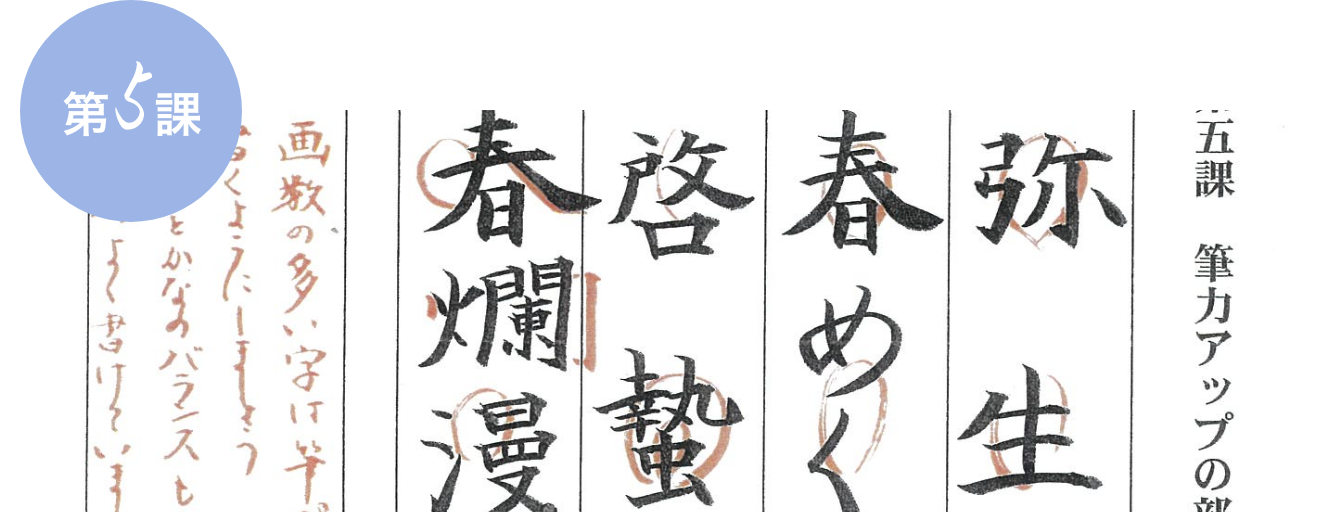 第5課
五課 筆力アップの部
弥生
春めく
啓蟄
春爛漫
画数の多い字は筆
くようにしましょう
とかなのバランスも
よく書けていま